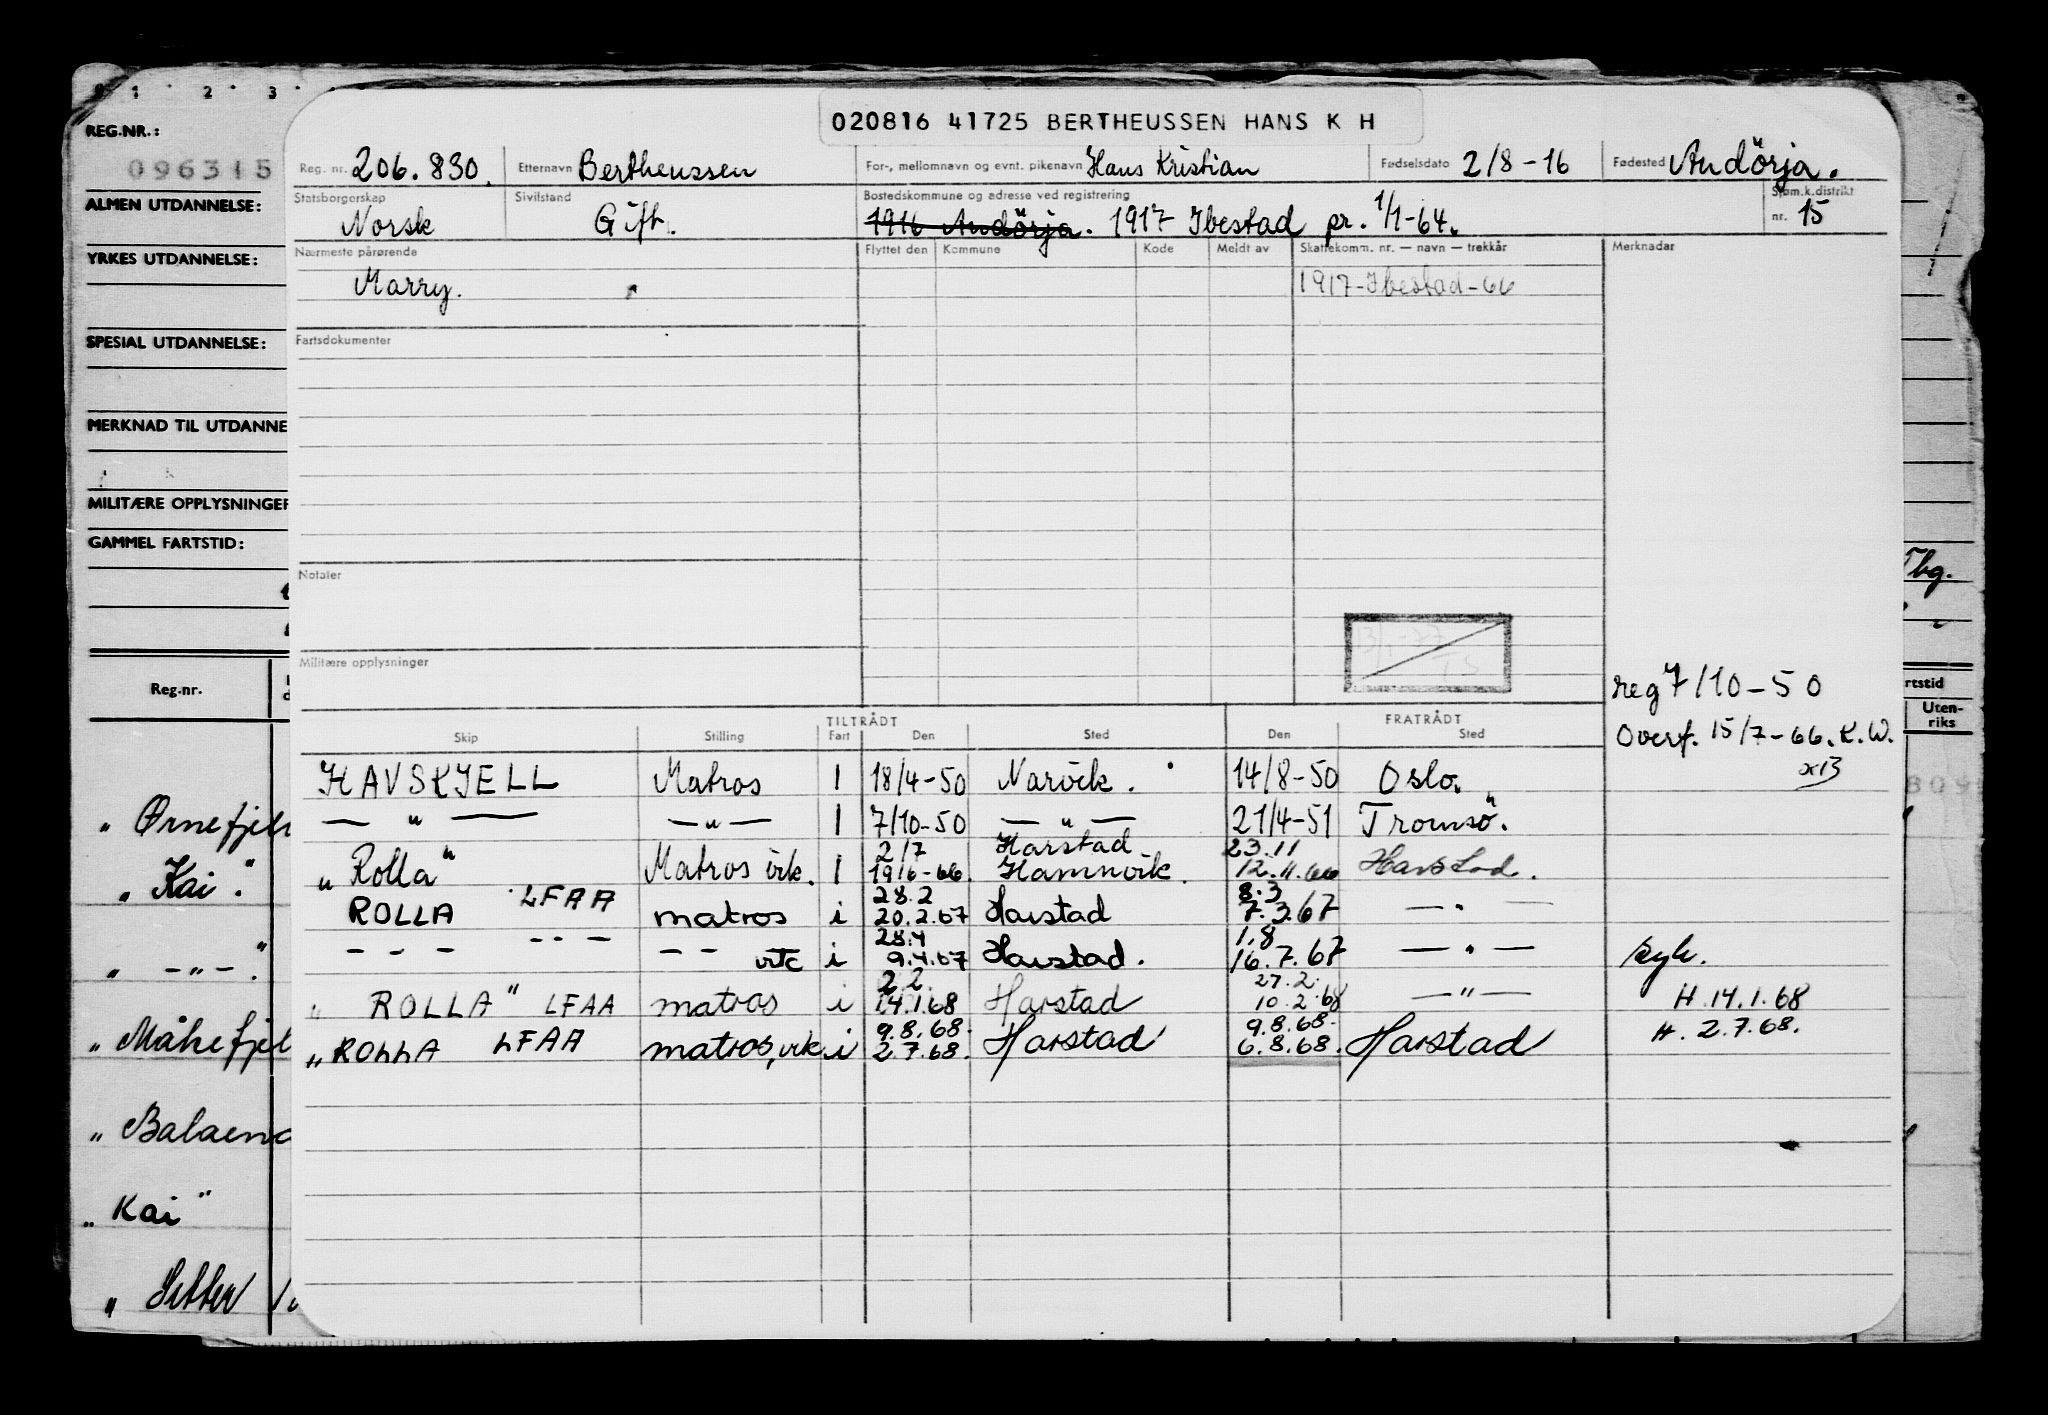 020816 41725 BERTHEUSSEN HANS K H
1 2 3
REG.NR.:
096315
ALMEN UTDANNELSE:
YRKES UTDANNELSE:
SPESIAL UTDANNELSE:
MERKNAD TIL UTDANNE
MILITÆRE OPPLYSNINGER
GAMMEL FARTSTID:
Reg.nr.
„ Ørnefjel
„ Kai".
„ -„-".
„ Måkefjel
„ Balaena
„ Kai"
„ Sitter
Reg. nr. 206.830. Etternavn Bertheussen For-, mellomnavn og evnt. pikenavn Hans Kristian Fødselsdato 2/8-16 Fødested Andörja.
Statsborgerskap Norsk Sivilstand Gift. Bostedskommune og adresse ved registrering 1916 Andörja. 1917 Ibestad pr. 1/1-64. Sjøm.k.distrikt nr. 15
Nærmeste pårørende Flyttet den Kommune Kode Meldt av Skattekomm. nr. — navn — trekkår Merknadar
Marry. 1917-Ibestad-66
Fartsdokumenter
Notater
Militære opplysninger
reg 7/10-50
Overf. 15/7-66. K.W.
TILTRÅDT FRATRÅDT
Skip Stilling Fart Den Sted Den Sted
HAVSKJELL Matros 1 18/4-50 Narvik. 14/8-50 Oslo.
— „ — — „ — 1 7/10-50 — „ — 21/4-51 Tromsö.
2/7 Harstad 23.11
„ Rolla" Matros vik. 1 19/6-66 Hamnvik. 12.11.66 Harstad.
28.2 8.3
ROLLA LFAA matros i 20.2.67 Harstad 7.3.67 — " —
28.4 1.8
- - - -- - - - vik i 9.4.67 Harstad. 16.7.67 — " — syk.
2.2. 27.2.
„ ROLLA" LFAA matros i 14.1.68 Harstad 10.2.68 — " — H 14.1.68
9.8.68. 9.8.68.
„ ROLLA LFAA matros, vik. i 2.7.68. Harstad 6.8.68. Harstad H. 2.7.68.
Tbg.
rtstid
Uten-
riks